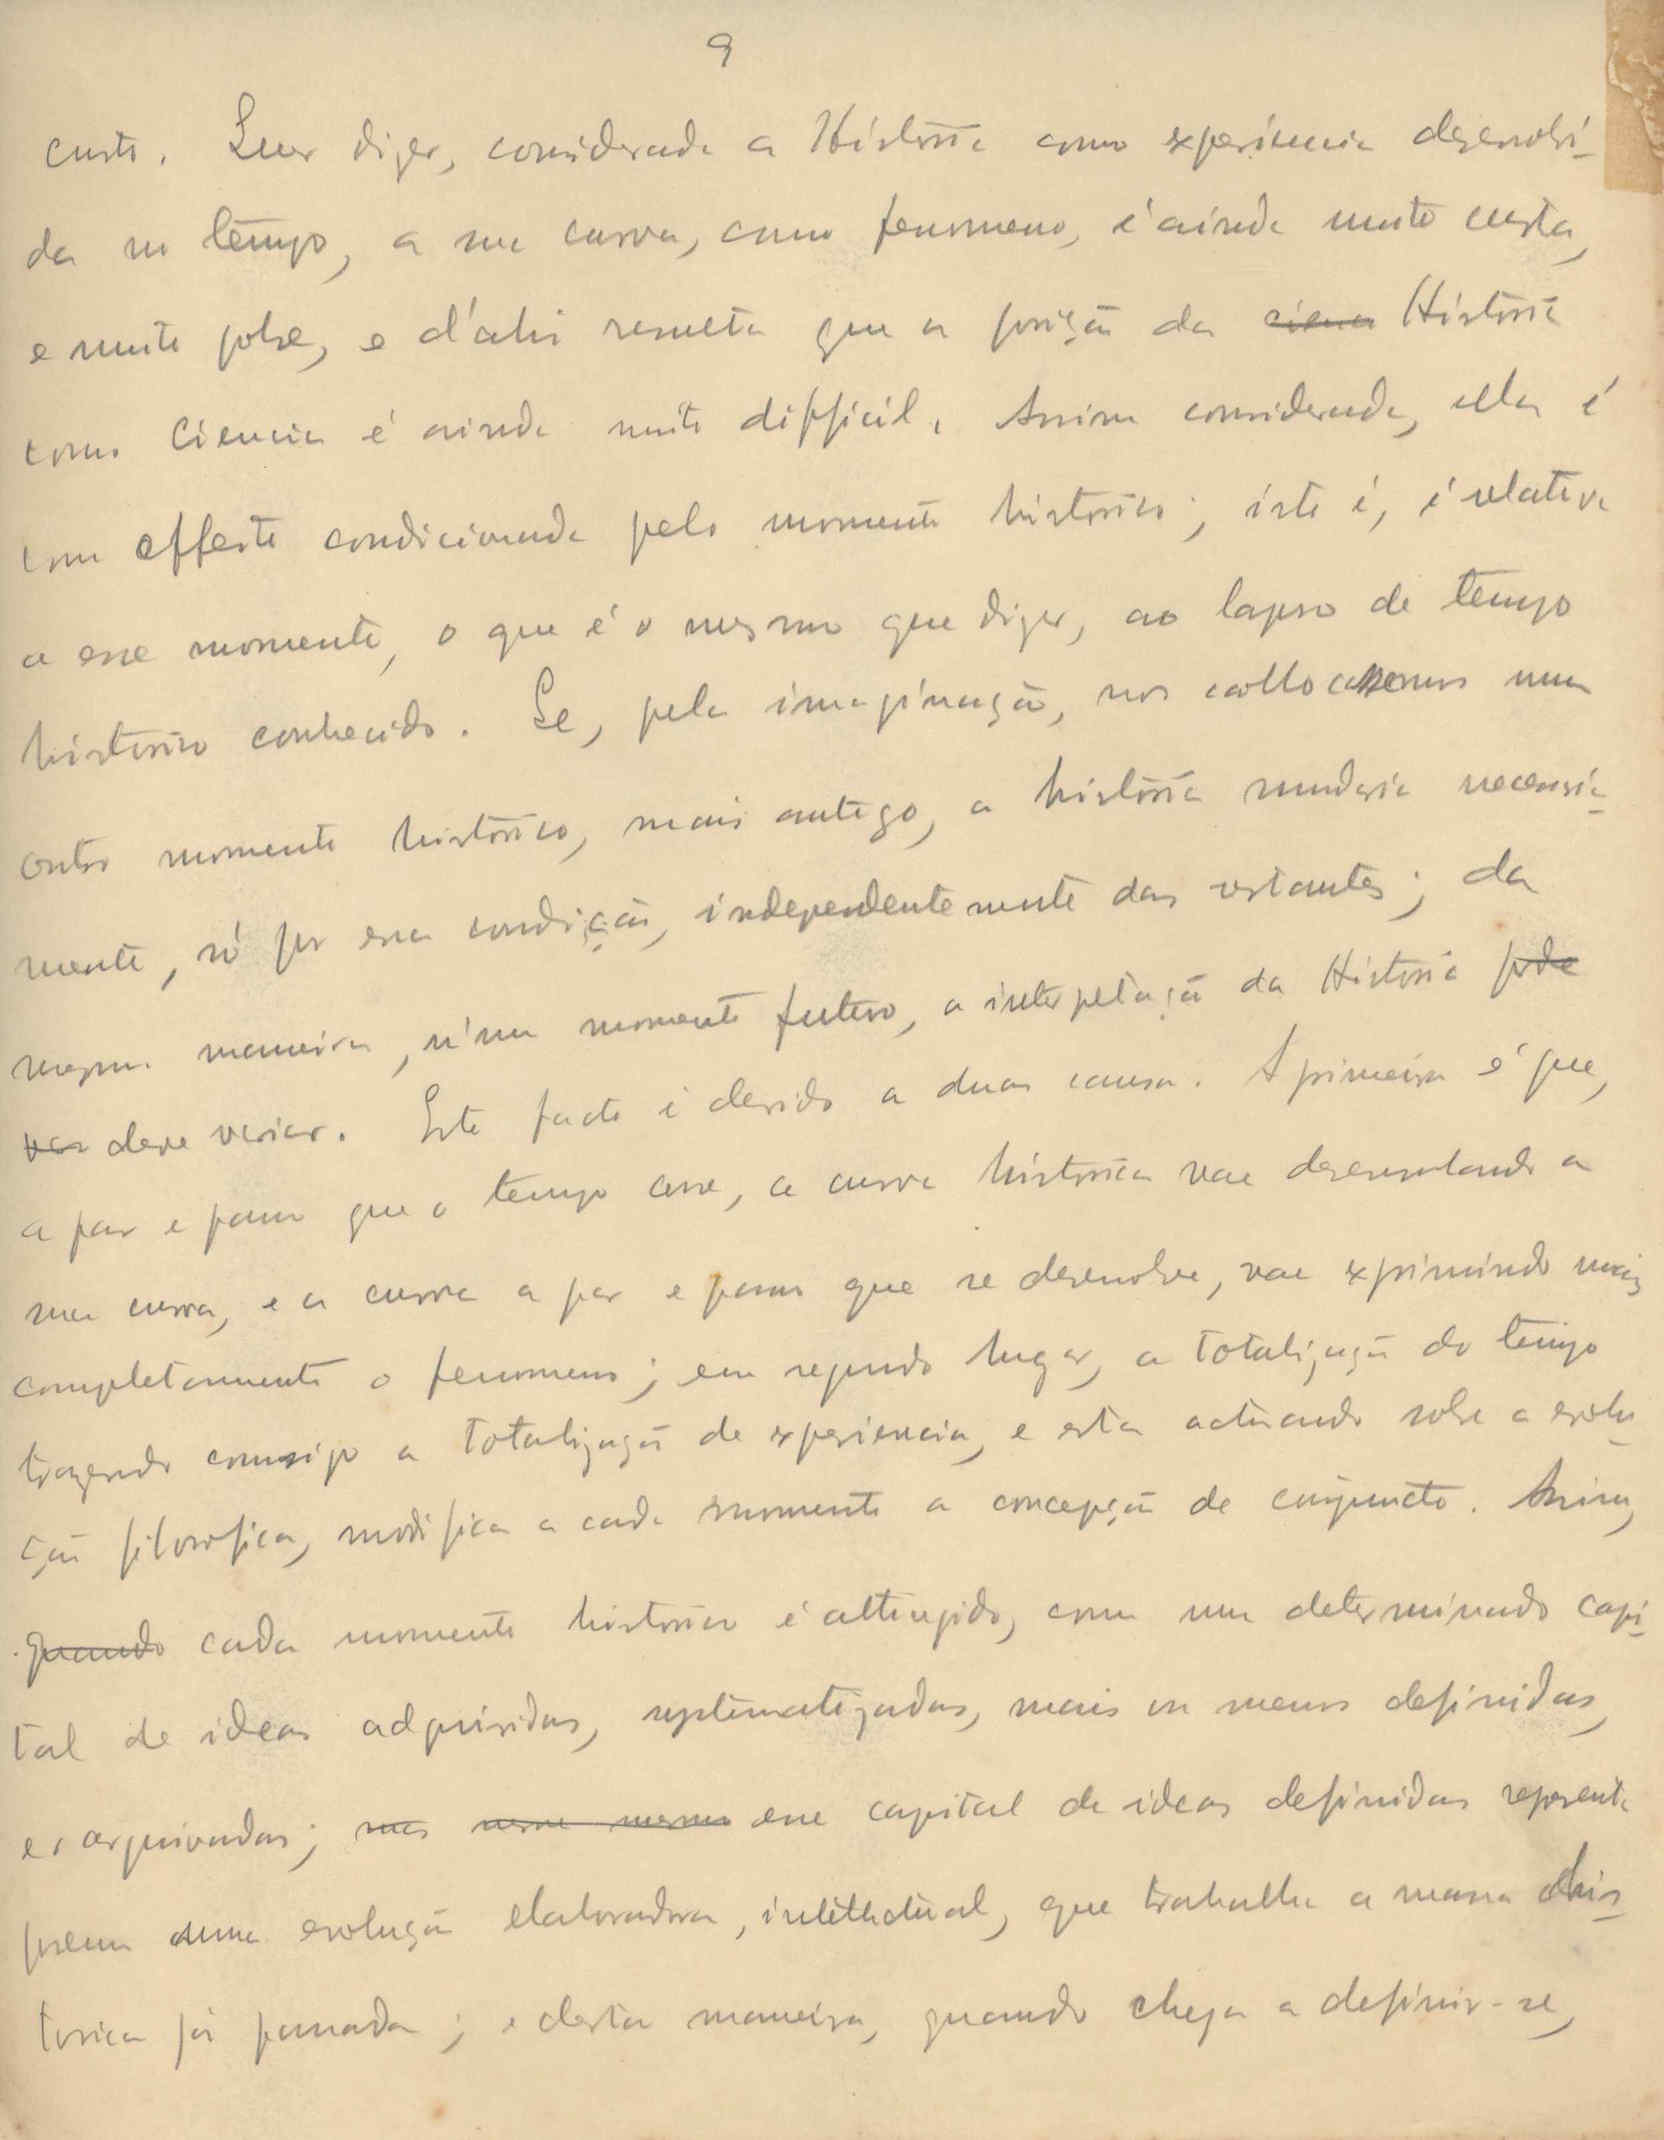 9
curto. Quer dizer, considerada a História como experiencia desenvolvi-
da no tempo, a sua curva, como fenomeno, é ainda muito curta,
e muito pobre, e d'ahi resulta que a posição da ciencia História
como Ciencia é ainda muito difficil. Assim considerada, ella é
com effeito condicionada pelo momento historico; isto é, é relativa
a esse momento, o que é o mesmo que dizer, ao lapso de tempo
historico conhecido. Se, pela imaginação, nos collocassemos num
outro momento historico, mais antigo, a história mudaria necessaria-
mente, só por essa condição, independentemente das restantes; da
mesma maneira, n'um momento futuro, a interpetação da História pode
deve variar. Este facto é devido a duas causa. A primeira é que,
a par e passo que o tempo corre, a curva historica vae desenrolando a
sua curva, e a curva a par e passo que se desenvolve, vae exprimindo mais
completamente o fenomeno; em segundo lugar, a totalização do tempo
trazendo comsigo a totalização de experiencia, e esta actuando sobre a evolu-
ção filosofica, modifica a cada momento a concepção de conjuncto. Assim,
quando cada momento historico é attingido, com um determinado capi-
tal de ideas adquiridas, systematizadas, mais ou menos definidas,
e arquivadas; mas nesse mesmo esse capital de ideas definidas representa
uma evolução elaboradora, intellectual, que trabalha a massa his-
torica já passada; e desta maneira, quando chega a definir-se,